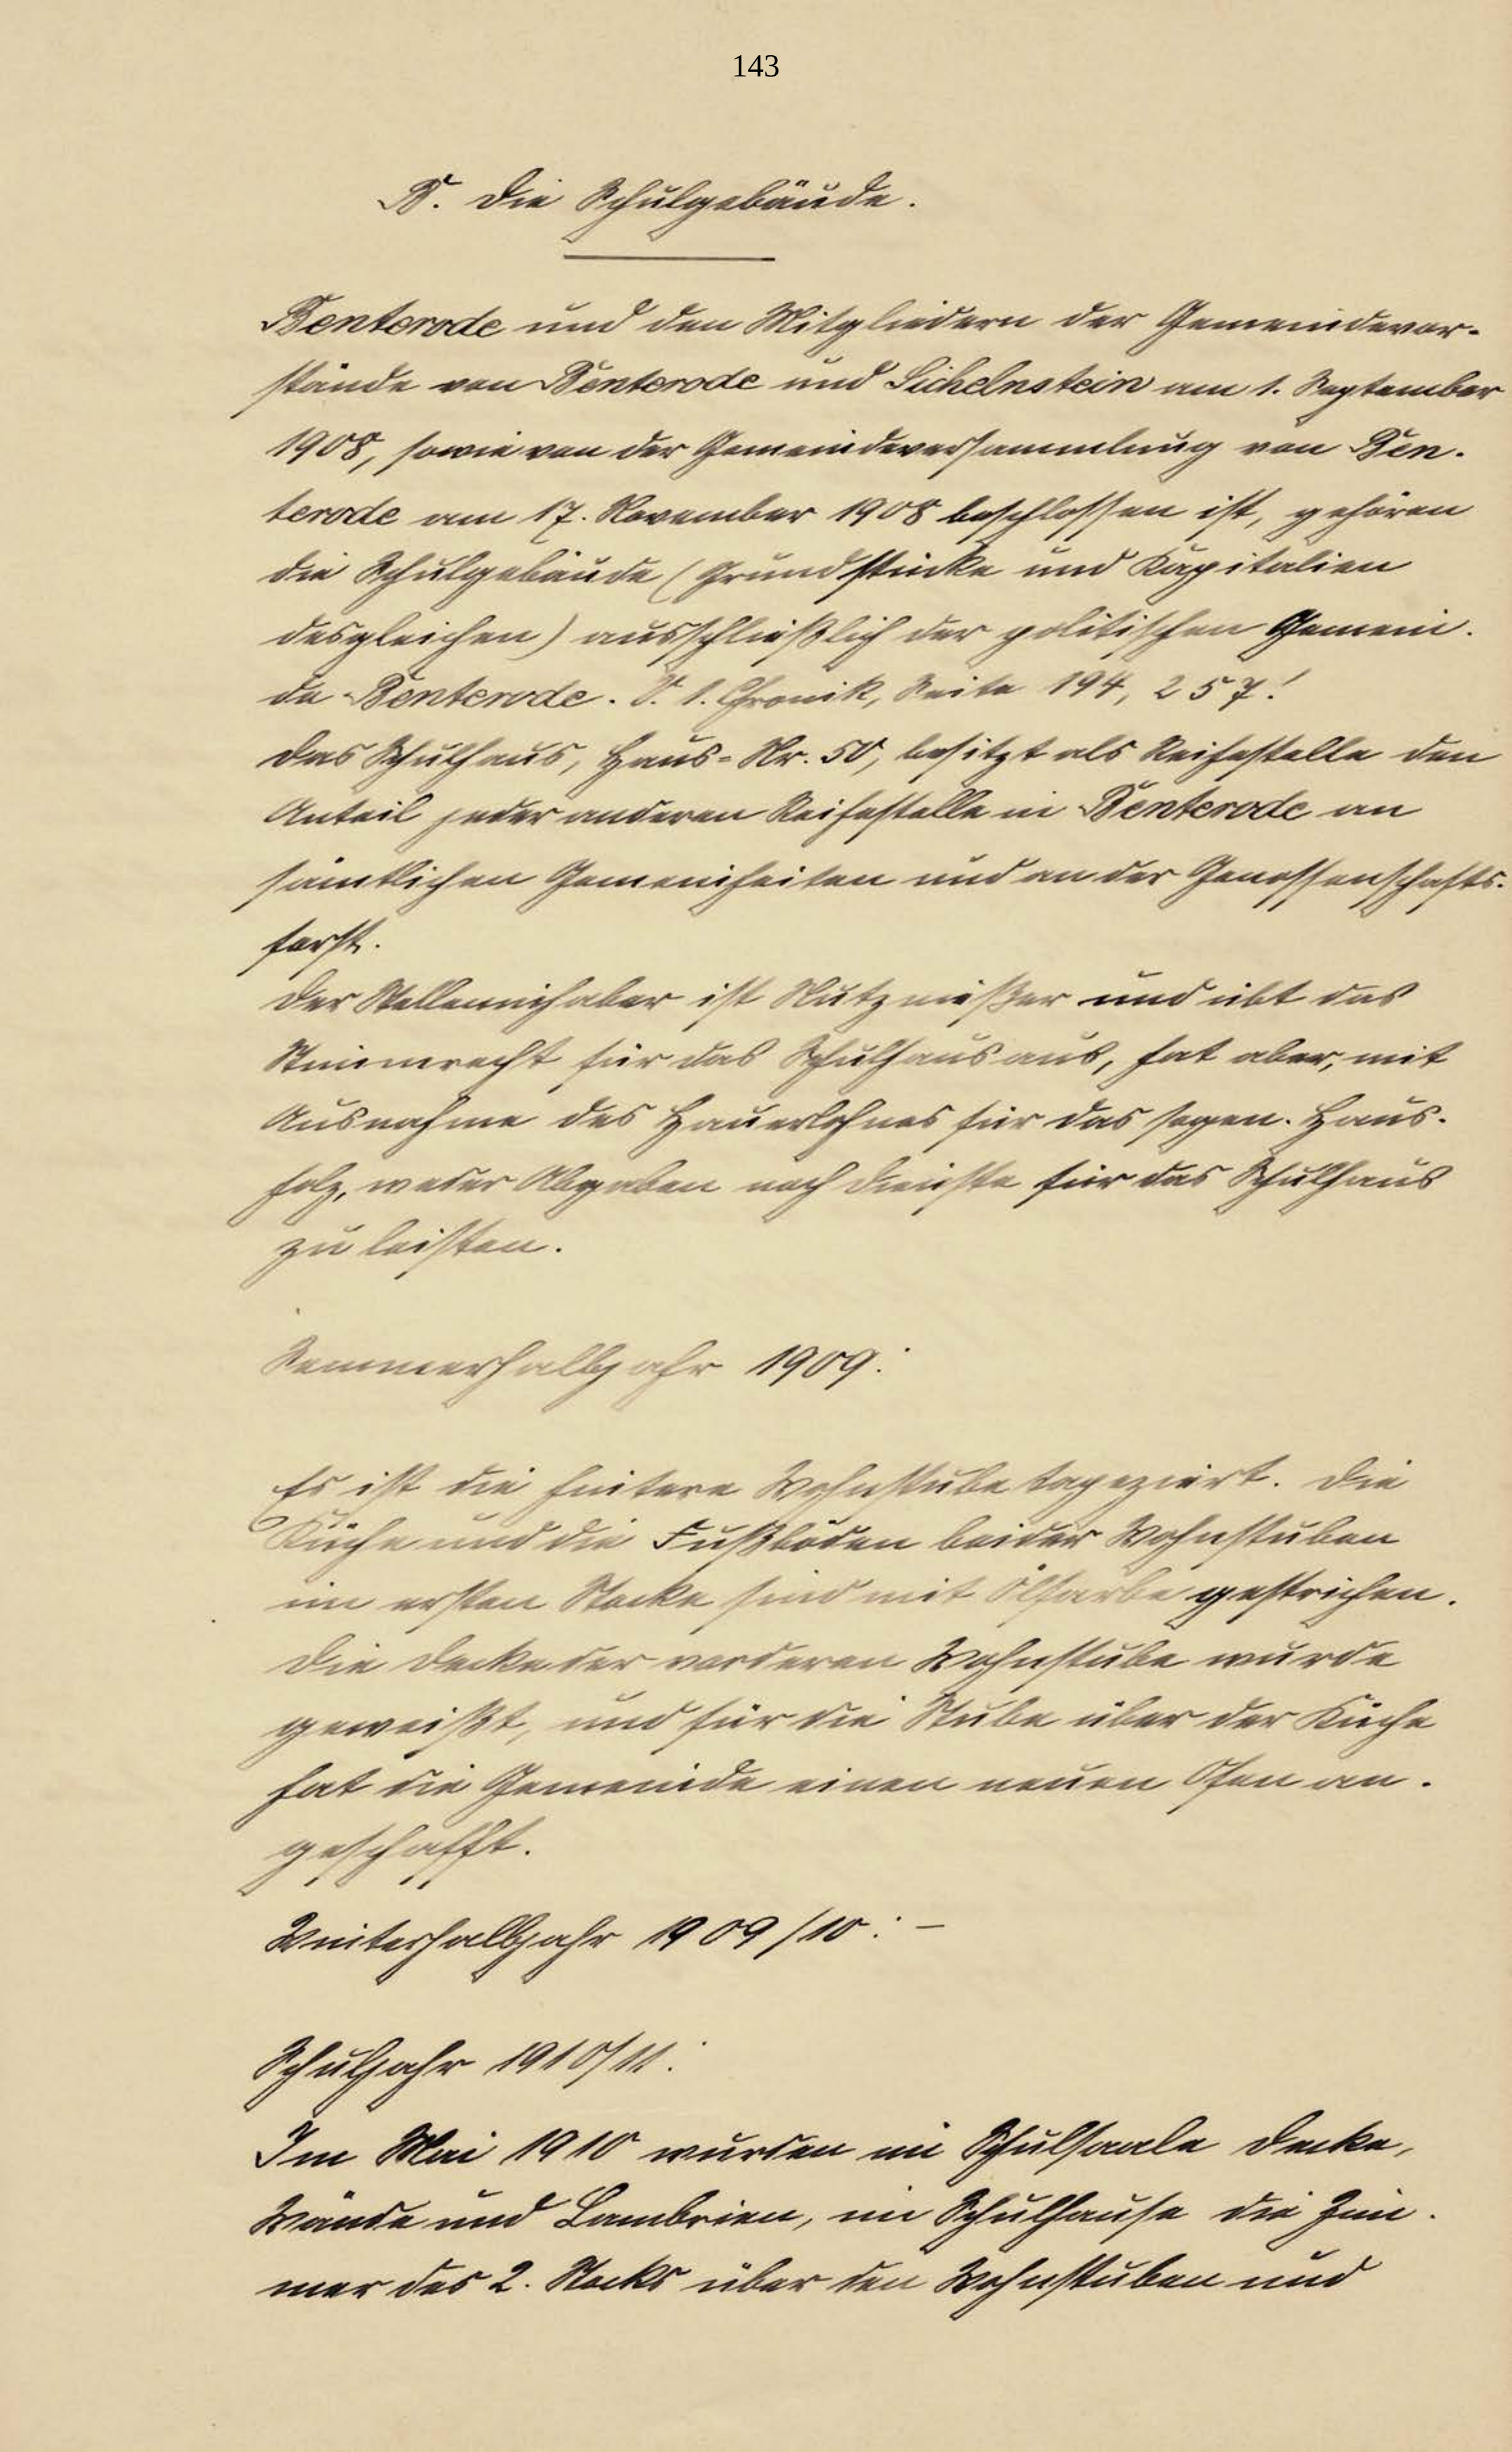 143
B. Die Schulgebäude.
Benterode und den Mitgliedern der Gemeindevor-
stände von Benterode und Sichelnstein am 1. September
1908, sowie von der Gemeindeversammlung von Ben-
terode am 17. November 1908 beschlossen ist, gehören
die Schulgebäude (Grundstücke und Kapitalien
desgleichen) ausschließlich der politischen Gemein-
de Benterode. S. 1. Chronik, Seite 194, 257!
Das Schulhaus, Haus-Nr. 50, besitzt als Reihestelle den
Anteil jeder anderen Reihestelle in Benterode an
sämtlichen Gemeinheiten und an der Genossenschafts-
forst.
Der Stelleninhaber ist Nutznießer und übt das
Stimmrecht für das Schulhaus aus, hat aber, mit
Ausnahme des Hauerlohnes für das sogen. Haus-
holz, weder Abgaben noch Dienste für das Schulhaus
zu leisten.
Sommerhalbjahr 1909:
Es ist die hintere Wohnstube tapeziert. Die
Küche und die Fußböden beider Wohnstuben
im ersten Stocke sind mit Ölfarbe gestrichen.
Die Decke der vorderen Wohnstube wurde
geweißt, und für die Stube über der Küche
hat die Gemeinde einen neuen Ofen an-
geschafft.
Winterhalbjahr 1909/10: –
Schuljahr 1910/11:
Im Mai 1910 wurden im Schulsaale Decke,
Wände und Lambrien, im Schulhause die Zim-
mer des 2. Stocks über den Wohnstuben und